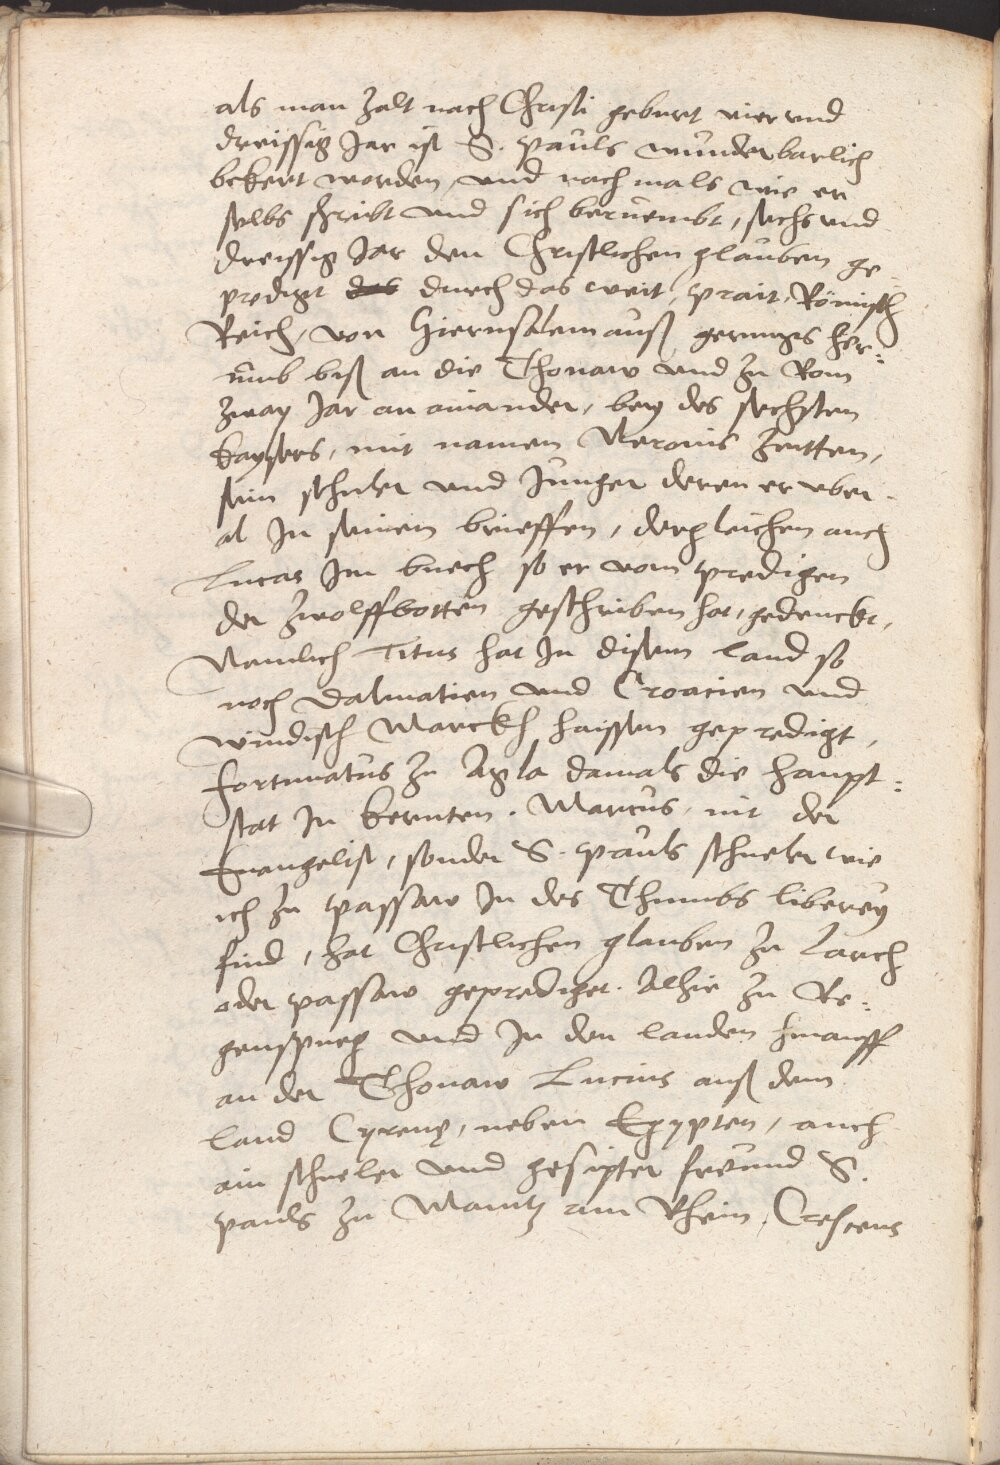 als man zalt nach Christi geburt vier und
dreissig Jar ist S. Pauls wunderbarlich
bekert worden, und nachmals wie er
selbs schreibt und sich berüembt, sechs und
dreissig Jar den Christlichen glauben ge-
predigt das durch das weit, prait, Römisch
Reich, von Hierusalem auß geringes her-
umb biß an die Thonaw und zu Rom
zway Jar an ainander, bey des sechsten
kaysers, mit namen Neronis zeitten,
sein schuler und Junger deren er uber-
al In seinem brieffen, dergleichen auch
Lucas Im buech so er vom predigen
der zwolffbotten geschriben hat, gedenckt,
Nemlich Titus hat In disem land so
noch Dalmatien und Croacien und
windisch Marckh haissen gepredigt,
fortunatus zu Agla damals die haupt-
stat In kernten. Marcus, nit der
Euangelist, sonder S. Pauls schueler wie
ich zu Passaw In des Thumbs liberey
find, hat Christlichen glauben zu Larch
oder Passaw geprediget. Alhie zu Re-
genspurg und In den landen hinauff
an der Thonaw Lucius auß dem
land Cyrene, neben Egypten, auch
ain schueler und gesipter freund S.
Pauls zu Maintz am Rhein, Crescens